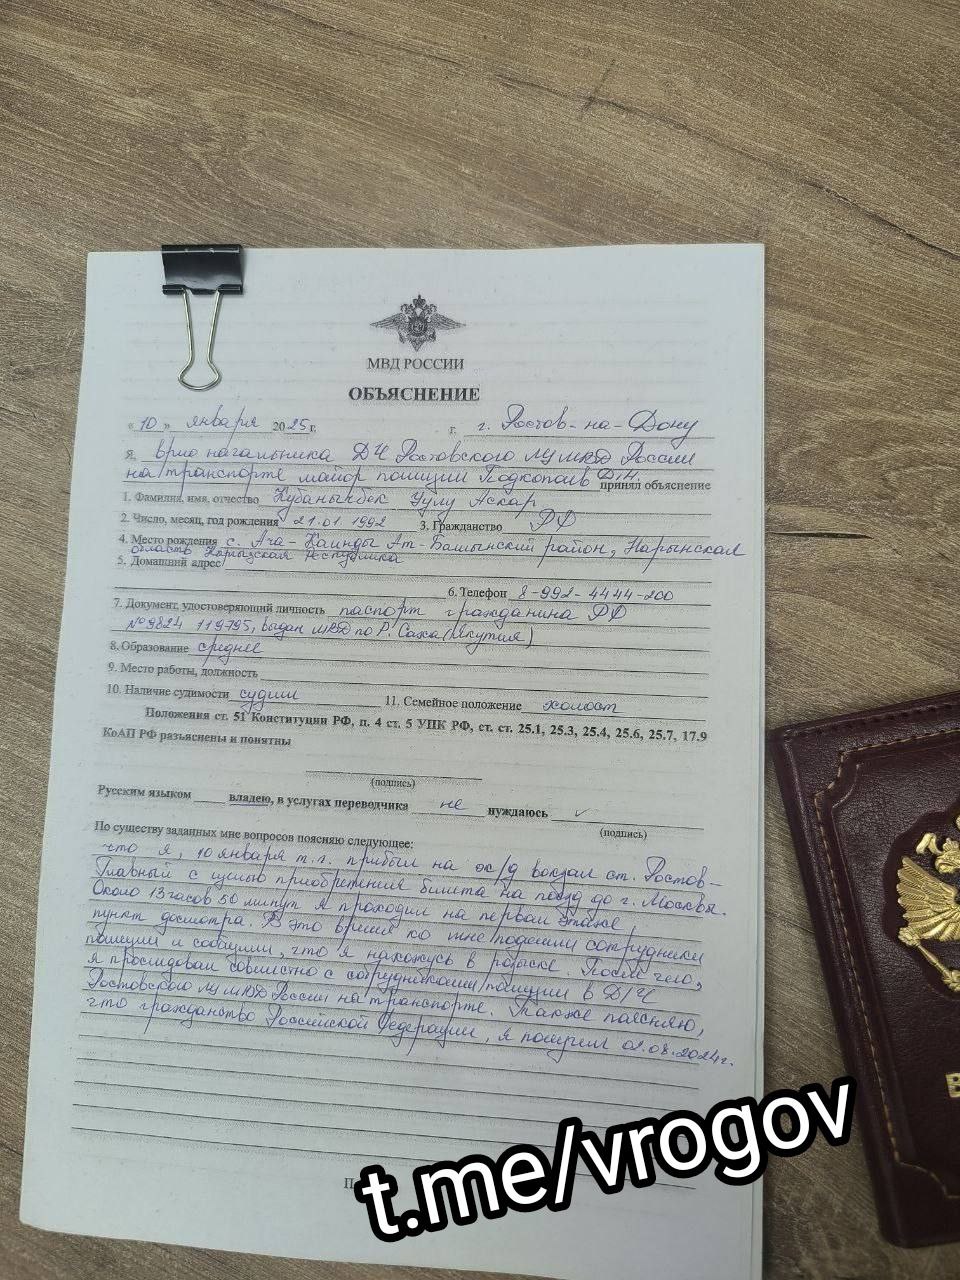 МВД РОССИИ
ОБЪЯСНЕНИЕ
« 10 » января 2025 г. г. г. Ростов-на-Дону
Я, Врио начальника ДЧ Ростовского ЛУ МВД России
на транспорте майор полиции Подкопаев Д.Н. принял объяснение
1. Фамилия, имя, отчество Кубанычбек Уулу Аскар
2. Число, месяц, год рождения 21.01.1992 3. Гражданство РФ
4. Место рождения с. Ача-Каинды Ат-Башынский район, Нарынская
область Кыргызская Республика
5. Домашний адрес
6. Телефон 8-992-4444-200
7. Документ, удостоверяющий личность паспорт гражданина РФ
№9824 119795, выдан МВД по Р. Саха (Якутия)
8. Образование среднее
9. Место работы, должность
10. Наличие судимости судим 11. Семейное положение холост
Положения ст. 51 Конституции РФ, п. 4 ст. 5 УПК РФ, ст. ст. 25.1, 25.3, 25.4, 25.6, 25.7, 17.9
КоАП РФ разъяснены и понятны
(подпись)
Русским языком владею, в услугах переводчика не нуждаюсь
(подпись)
По существу заданных мне вопросов поясняю следующее:
что я, 10 января т.г. прибыл на ж/д вокзал ст. Ростов-
Главный с целью приобретения билета на поезд до г. Москвы.
Около 13 часов 50 минут я проходил на первом этаже
пункт досмотра. В это время ко мне подошли сотрудники
полиции и сообщили, что я нахожусь в розыске. После чего,
я проследовал совместно с сотрудниками полиции в Д/Ч
Ростовского ЛУ МВД России на транспорте. Также поясняю,
что гражданство Российской Федерации, я получил 02.08.2024г.
П
В
t.me/vrogov